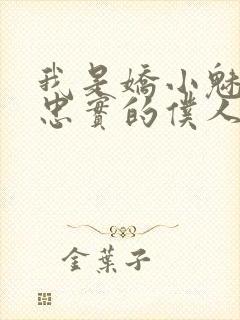 我是嬌小魅
忠實的僕人
金葉子